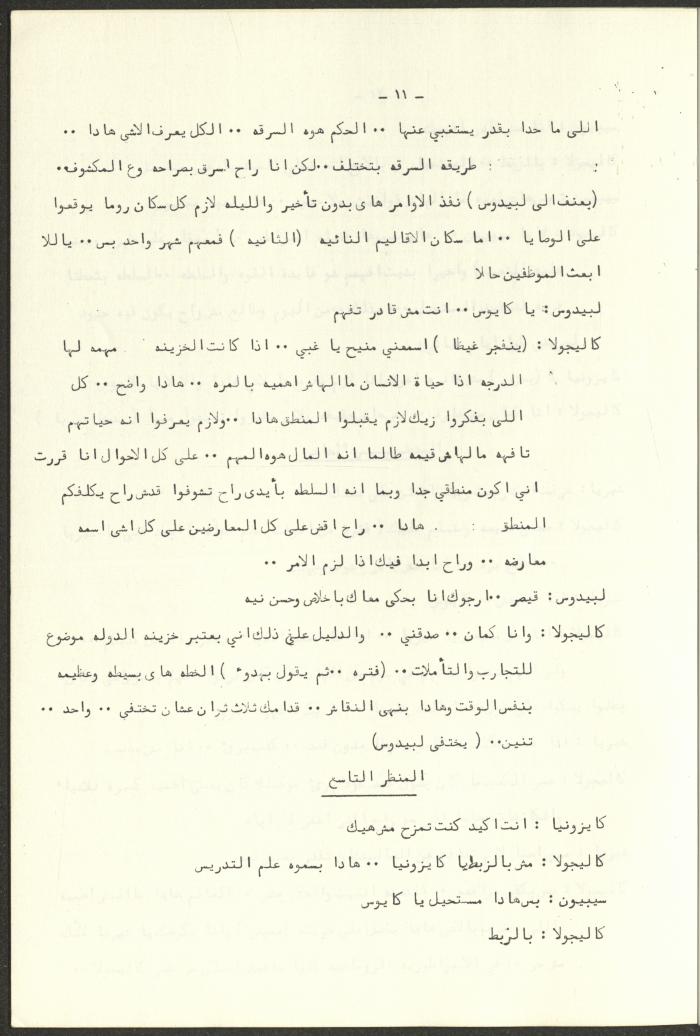 - ١١ -
اللى ما حدا بقدر يستغبي عنها ٠٠ الحكم هوه السرقه ٠٠ الكل يعرف الاشي هادا ٠٠
: طريقه السرقه بتختلف ٠٠ لكن انا راح اسرق بصراحه وع المكشوف ٠٠
(بعنف الى لبيدوس) نفذ الاوامر هاى بدون تأخير والليله لازم كل سكان روما يوقعوا
على الوصايا ٠٠ اما سكان الاقاليم النائيه (الثانيه) فمعهم شهر واحد بس ٠٠ ياللا
ابعث الموظفين حالا
لبيدوس: يا كايوس ٠٠ انت مش قادر تفهم
كاليجولا: (ينفجر غيظا) اسمعني منيح يا غبي ٠٠ اذا كانت الخزينه مهمه لها
الدرجه اذا حياة الانسان ما الهاش اهميه بالمره ٠٠ هادا واضح ٠٠ كل
اللى بفكروا زيك لازم يقبلوا المنطق هادا ٠٠ ولازم يعرفوا انه حياتهم
تافهه ما لهاش قيمه طالما انه المال هوه المهم ٠٠ على كل الاحوال انا قررت
اني اكون منطقي جدا وبما انه السلطه بأيدى راح تشوفوا قدش راح يكلفكم
المنطق هادا ٠٠ راح اقض على كل المعارضين على كل اشى اسمه
معارضه ٠٠ وراح ابدا فيك اذا لزم الامر ٠٠
لبيدوس: قيصر ٠٠ ارجوك انا بحكى معاك باخلاص وحسن نيه
كاليجولا: وانا كمان ٠٠ صدقني ٠٠ والدليل على ذلك اني بعتبر خزينه الدوله موضوع
للتجارب والتأملات ٠٠ (فتره ٠٠ ثم يقول بهدوء) الخطه هاى بسيطه وعظيمه
بنفس الوقت وهادا بنهى النقاش ٠٠ قدامك ثلاث ثوان عشان تختفي ٠٠ واحد ٠٠
تنين ٠٠ (يختفى لبيدوس)
المنظر التاسع
كايزونيا: انت اكيد كنت تمزح مش هيك
كاليجولا: مش بالزبط يا كايزونيا ٠٠ هادا بسموه علم التدريس
سيبيون: بس هادا مستحيل يا كايوس
كاليجولا: بالزبط